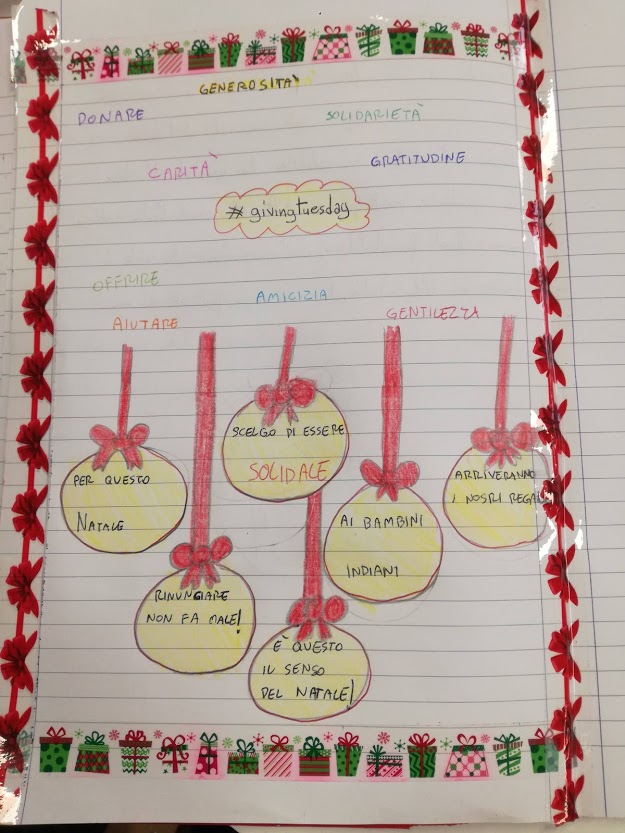 GENEROSITÀ
DONARE
SOLIDARIETÀ
CARITÀ
GRATITUDINE
#givingtuesday
OFFRIRE
AMICIZIA
AIUTARE
GENTILEZZA
PER QUESTO
NATALE
SCELGO DI ESSERE
SOLIDALE
RINUNCIARE
NON FA MALE!
AI BAMBINI
INDIANI
ARRIVERANNO
I NOSRI REGA
È QUESTO
IL SENSO
DEL NATALE!